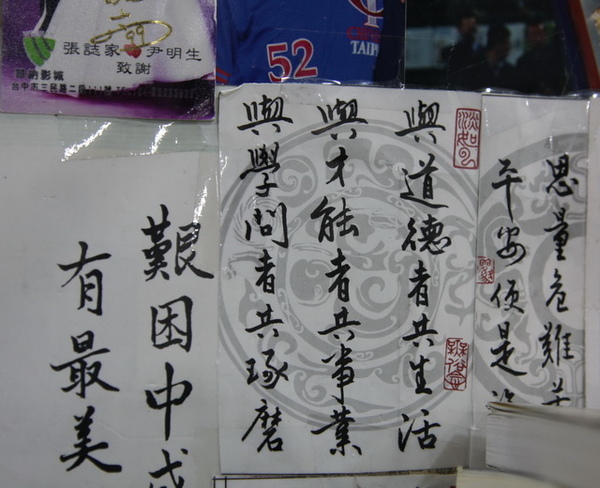 張誌家❤尹明生
致謝
華納影城
台中市三民路二段
52
TAIPE
思量危難
平安便是
與道德者共生活
與才能者共事業
與學問者共琢磨
艱困中
有最美